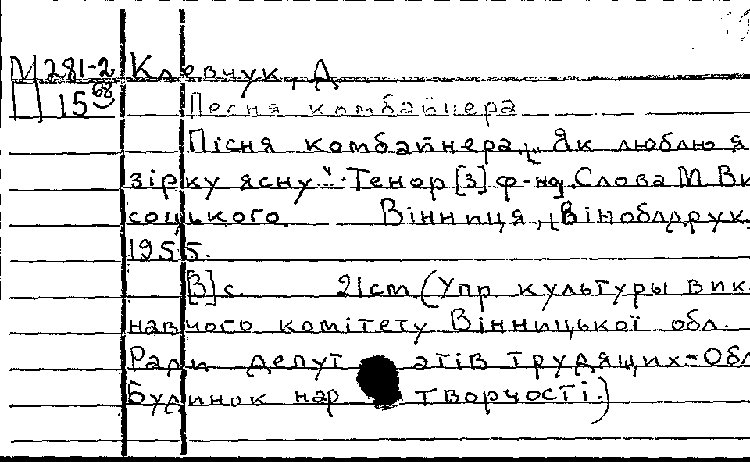 М 281-2 Клевчук, Д
1568 Песня комбайнера
Пісня комбайнера, "Як люблю я
зірку ясну". Тенор [з] ф-но Слова М Ви
соцького. Вінниця, Вінобларук.
1955.
[3] с. 21cm (Упр культуры вик.
навчого комітету Вінницької обл.
Ради депутатів трудящих = Обл
Будинок нар творчості.)